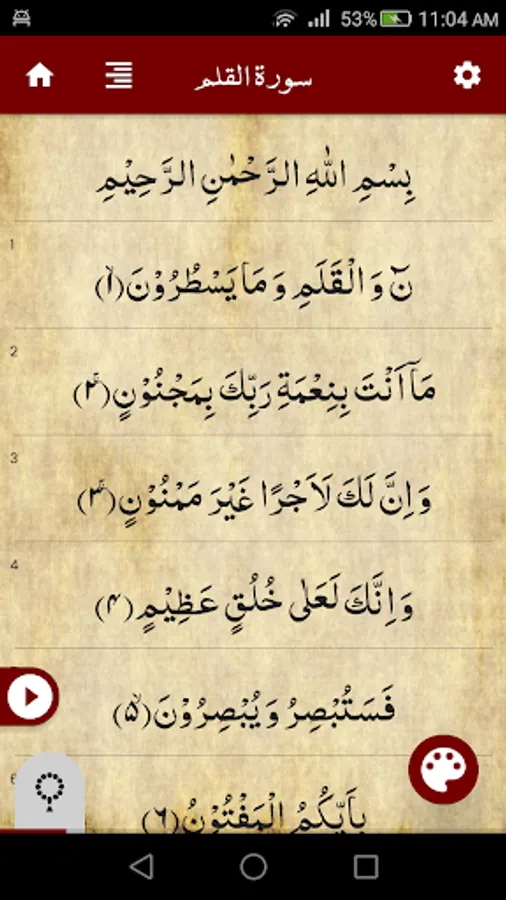 53% 11:04 AM
سورة القلم
بِسْمِ اللهِ الرَّحْمٰنِ الرَّحِيْمِ
1
نٓ وَ الْقَلَمِ وَ مَا يَسْطُرُوْنَ(۱)ۙ
2
مَاۤ اَنْتَ بِنِعْمَةِ رَبِّكَ بِمَجْنُوْنٍ(۲)ۚ
3
وَ اِنَّ لَكَ لَاَجْرًا غَيْرَ مَمْنُوْنٍ(۳)ۚ
4
وَ اِنَّكَ لَعَلٰى خُلُقٍ عَظِيْمٍ(۴)
فَسَتُبْصِرُ وَ يُبْصِرُوْنَ(۵)ۙ
6
بِاَىيِّكُمُ الْمَفْتُوْنُ(۶)